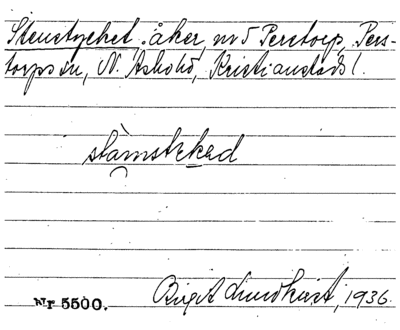 Stenstycket, åker, nr 5 Perstorp, Pers-
torps sn, N. Åsbohd, Kristianstads l.
stàmstɛkəd
Nr 5500.
Birgit Lundkvist, 1936.